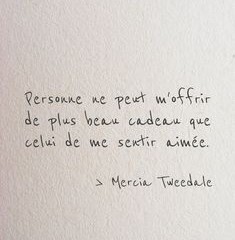 Personne ne peut m'offrir
de plus beau cadeau que
celui de me sentir aimée.
> Mercia Tweedale